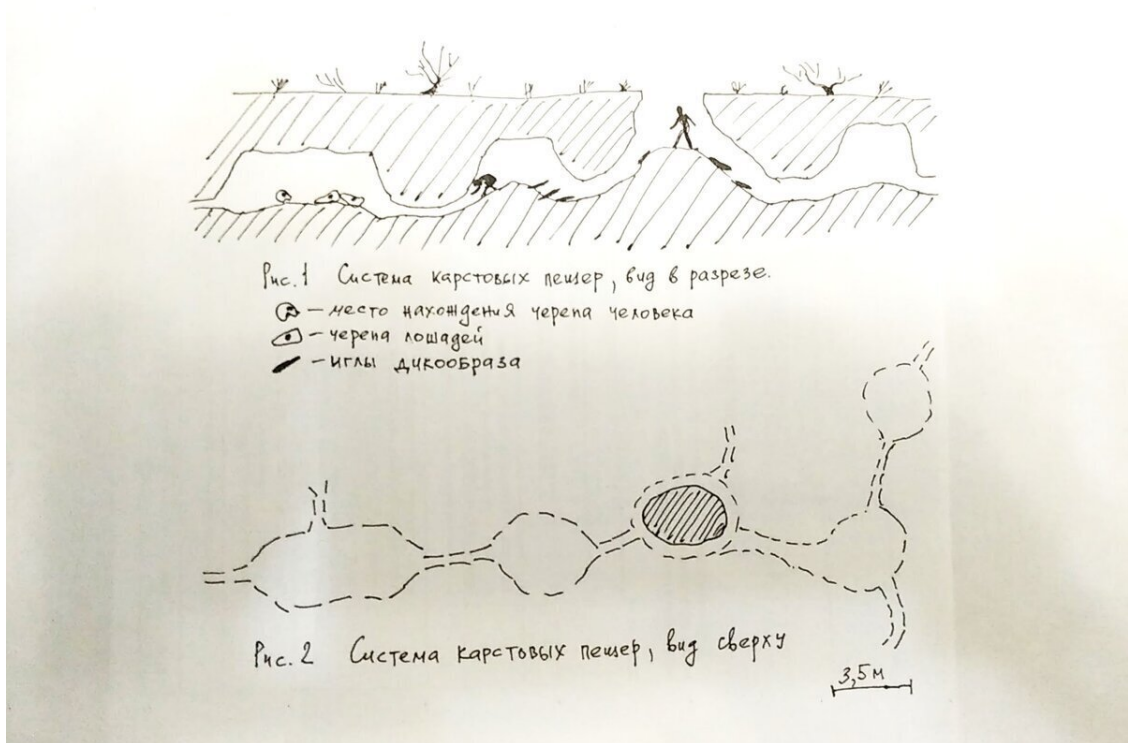 Рис. 1 Система карстовых пещер, вид в разрезе.
– место нахождения черепа человека
– черепа лошадей
– иглы дикообраза
Рис. 2 Система карстовых пещер, вид сверху
3,5 м